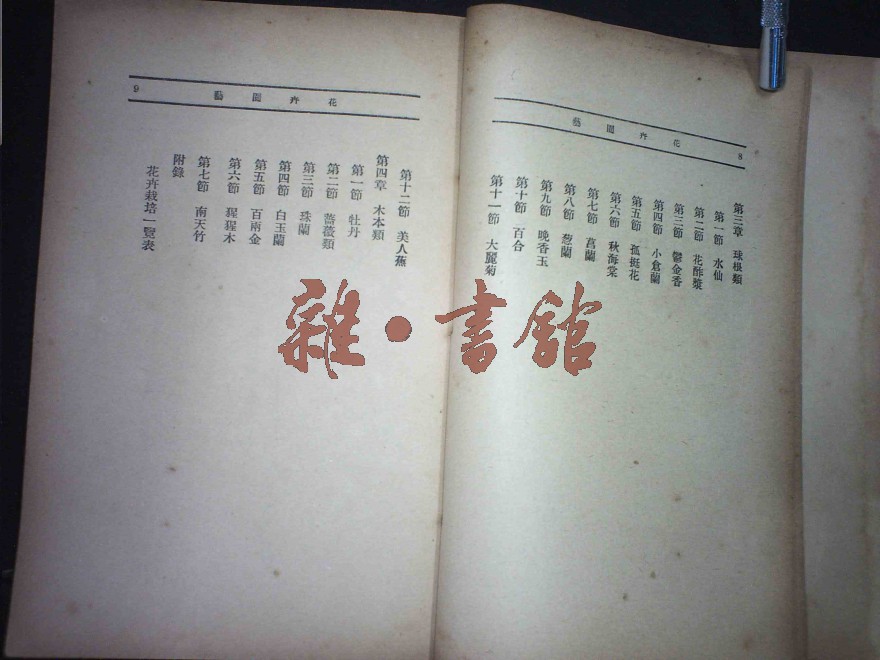 8
花卉園藝
第三章 球根類
第一節 水仙
第二節 花酢漿
第三節 鬱金香
第四節 小倉蘭
第五節 孤挺花
第六節 秋海棠
第七節 菖蘭
第八節 葱蘭
第九節 晚香玉
第十節 百合
第十一節 大麗菊
花卉園藝
9
第十二節 美人蕉
第四章 木本類
第一節 牡丹
第二節 薔薇類
第三節 珠蘭
第四節 白玉蘭
第五節 百兩金
第六節 猩猩木
第七節 南天竹
附錄
花卉栽培一覽表
雜·書館